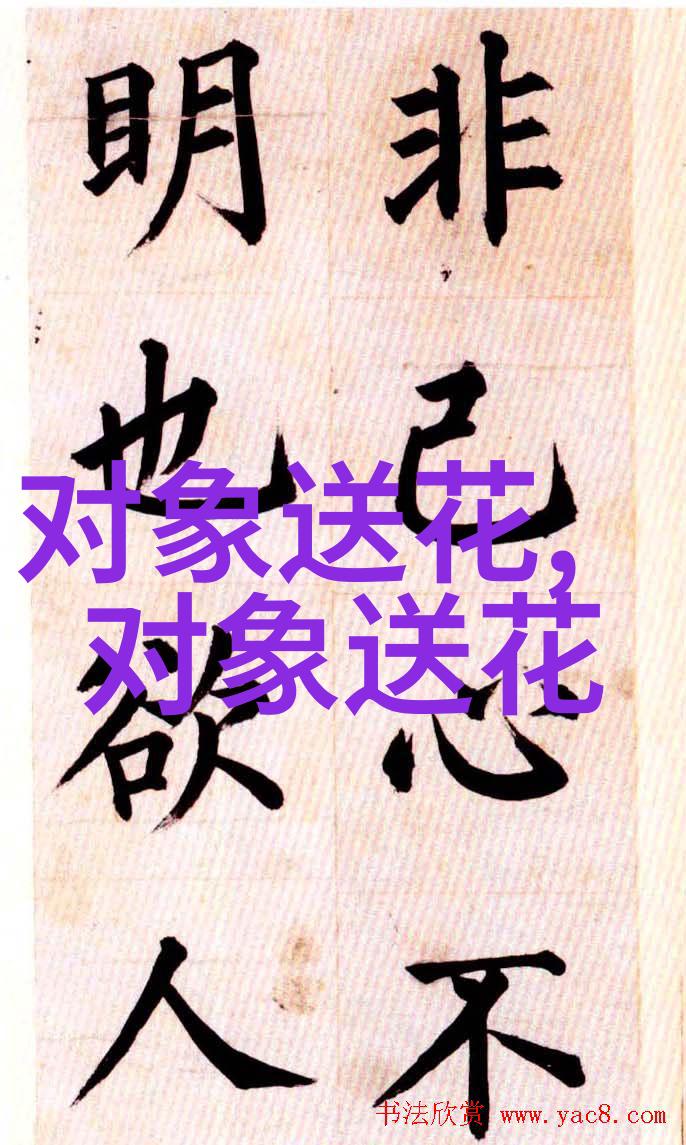 非己心不
明也欲人
对象送花,
对象送花
书法欣赏 www.yac8.com